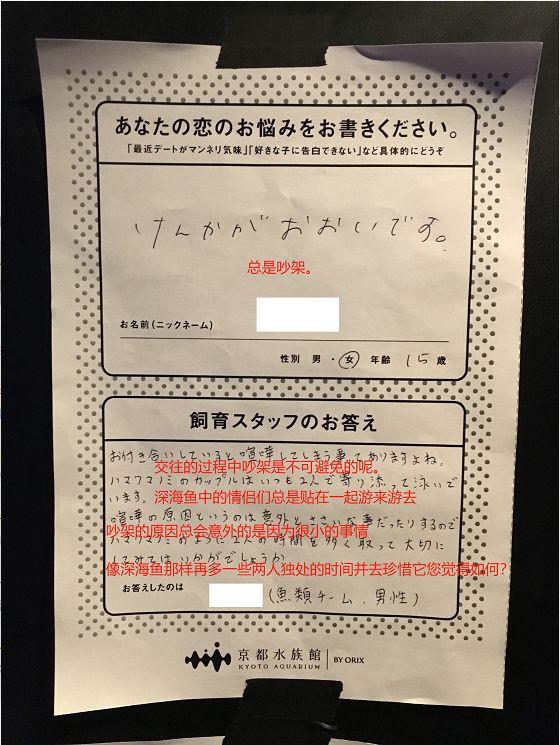 あなたの恋のお悩みをお書きください。
「最近デートがマンネリ気味」「好きな子に告白できない」など具体的にどうぞ
けんかがおおいです。
总是吵架。
お名前(ニックネーム)
性別 男・女 年齢 15 歳
飼育スタッフのお答え
お付き合いしていると喧嘩してしまう事ってありますよね。
交往的过程中吵架是不可避免的呢。
ハマクマノミのカップルはいつも2人で寄り添って泳いで
います。
深海鱼中的情侣们总是贴在一起游来游去
喧嘩の原因というのは意外とささいな事だったりするので
吵架的原因总会意外的是因为很小的事情
ハマクマノミのように2人の時間を多く取って大切に
してみてはいかがでしょうか
像深海鱼那样再多一些两人独处的时间并去珍惜它您觉得如何?
お答えしたのは (魚類チーム、男性)
京都水族館 BY ORIX
KYOTO AQUARIUM